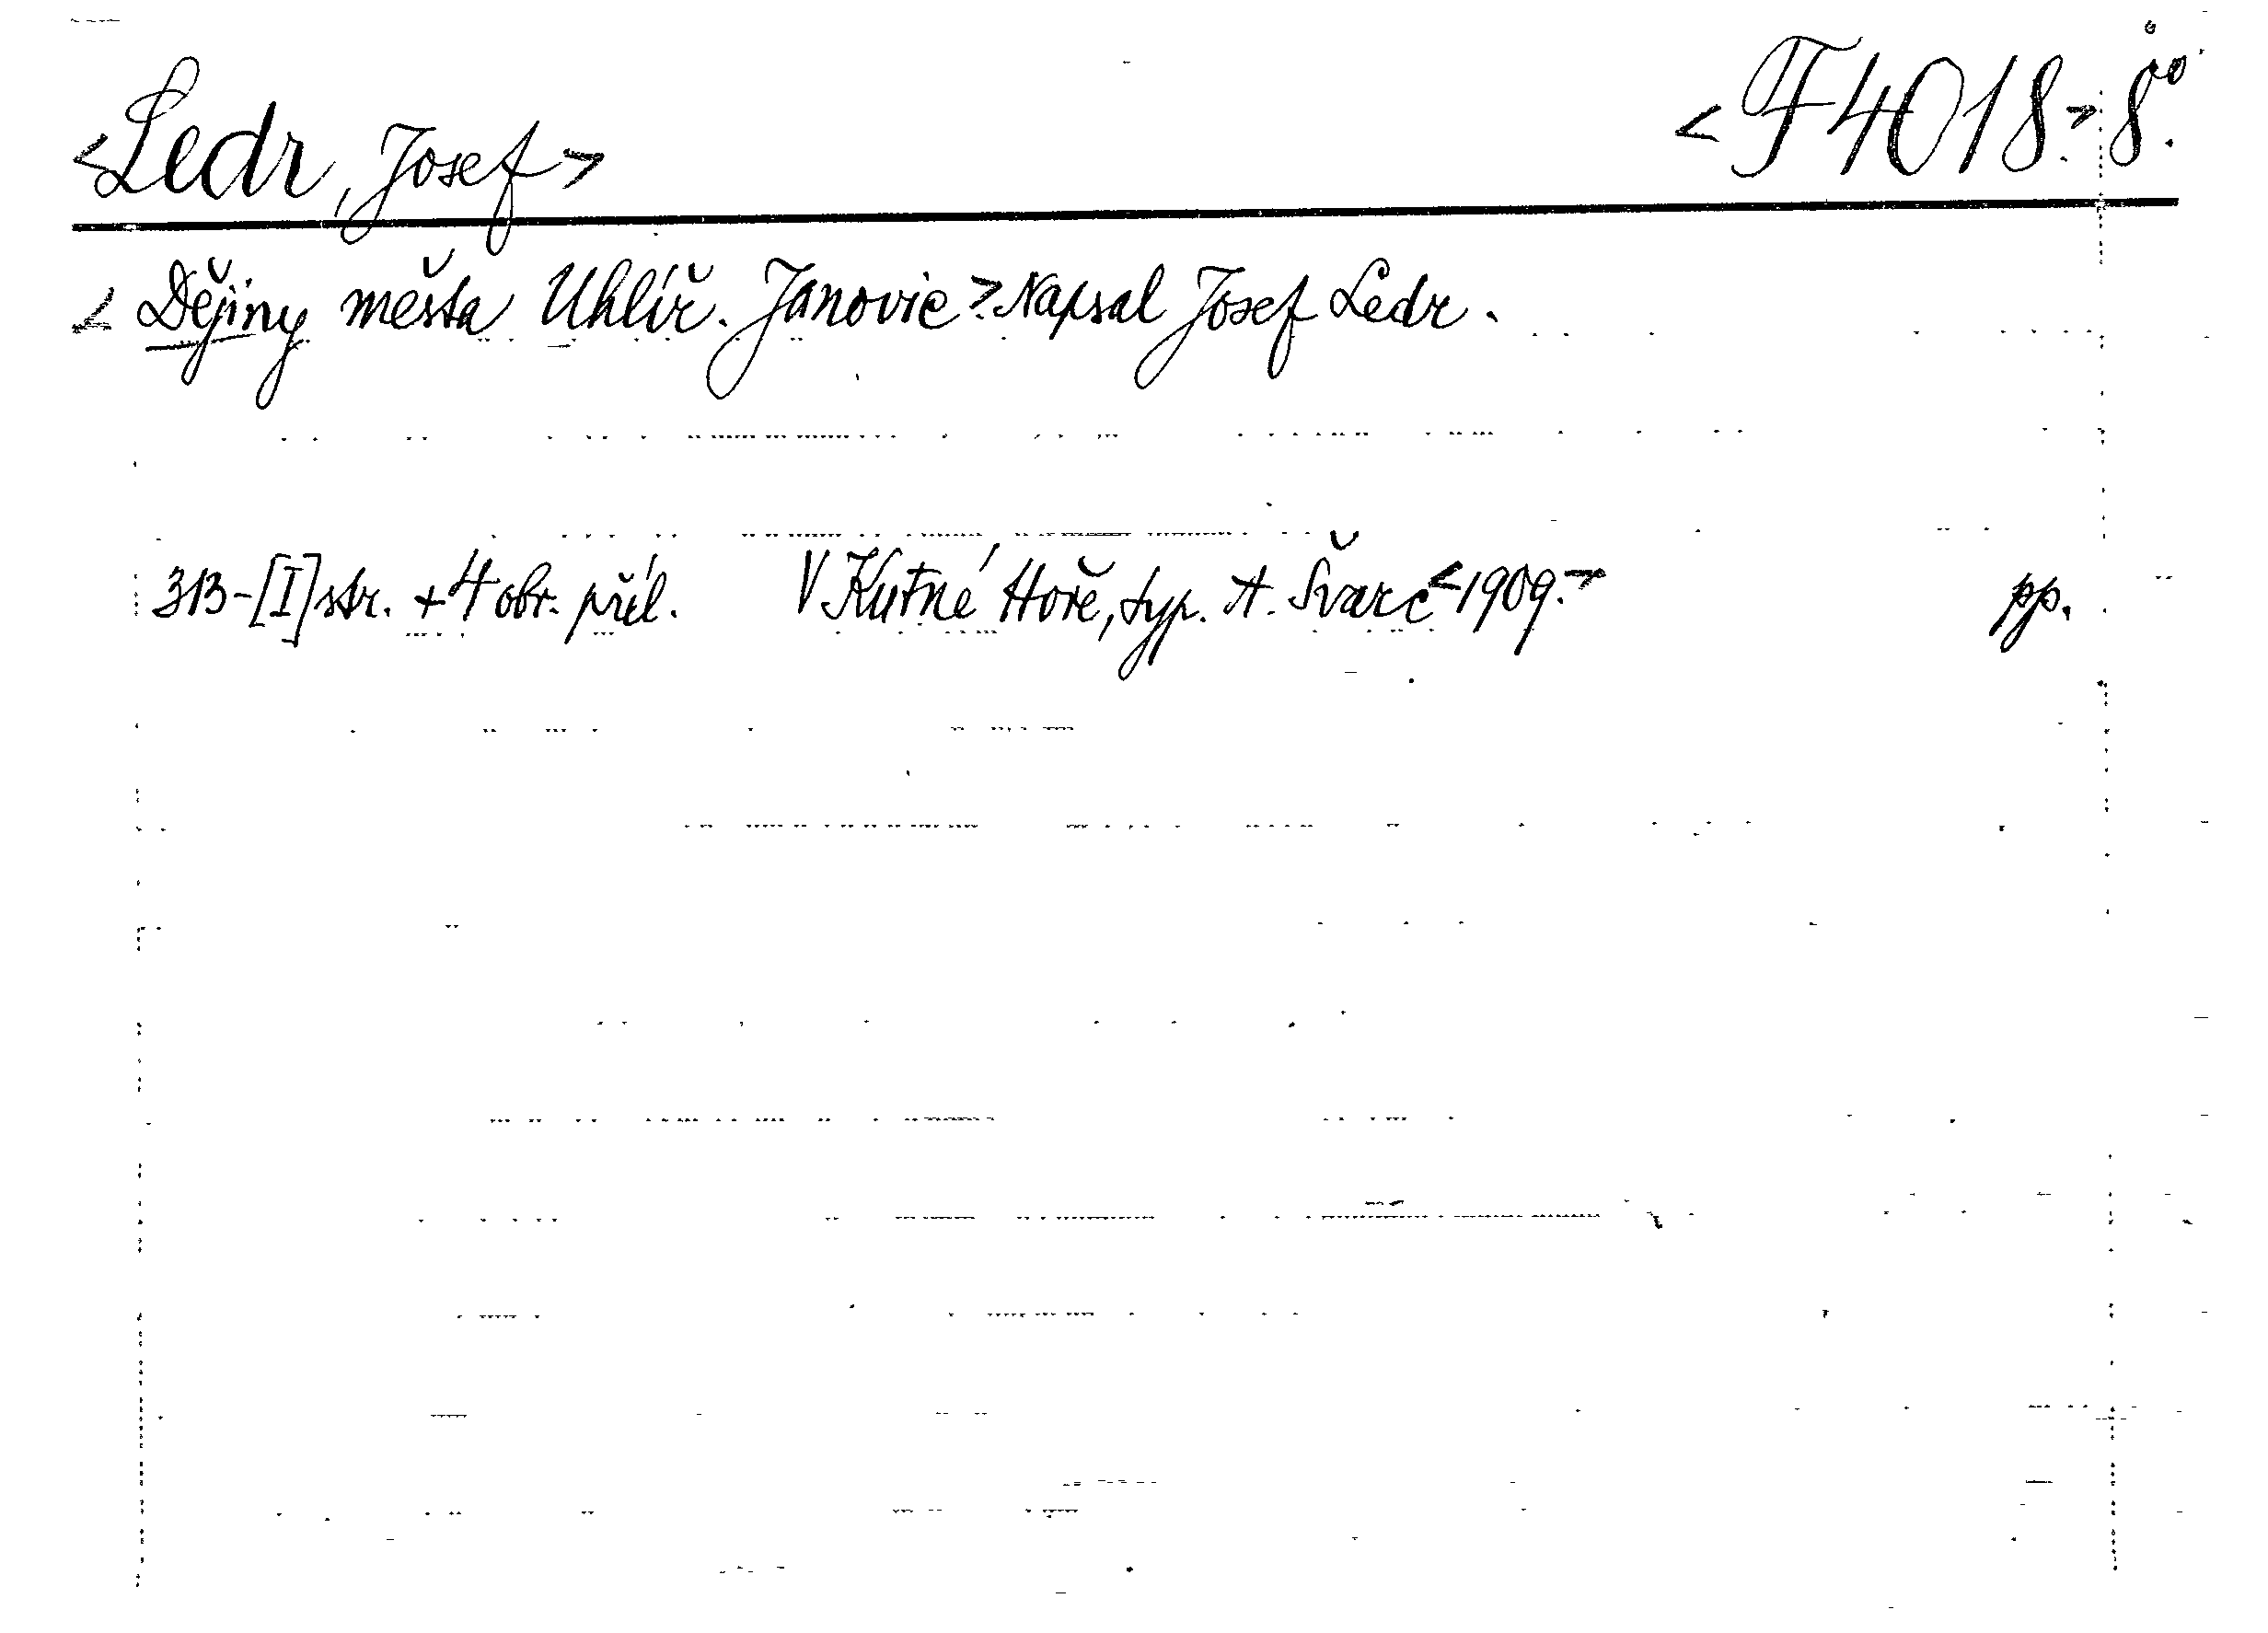 <Ledr, Josef> <F4018.> 8°.
<Dějiny města Uhlíř. Janovic.> Napsal Josef Ledr.
313-[I] str. + 4 obr. příl. V Kutné Hoře, typ. A. Švarc <1909.> pp.